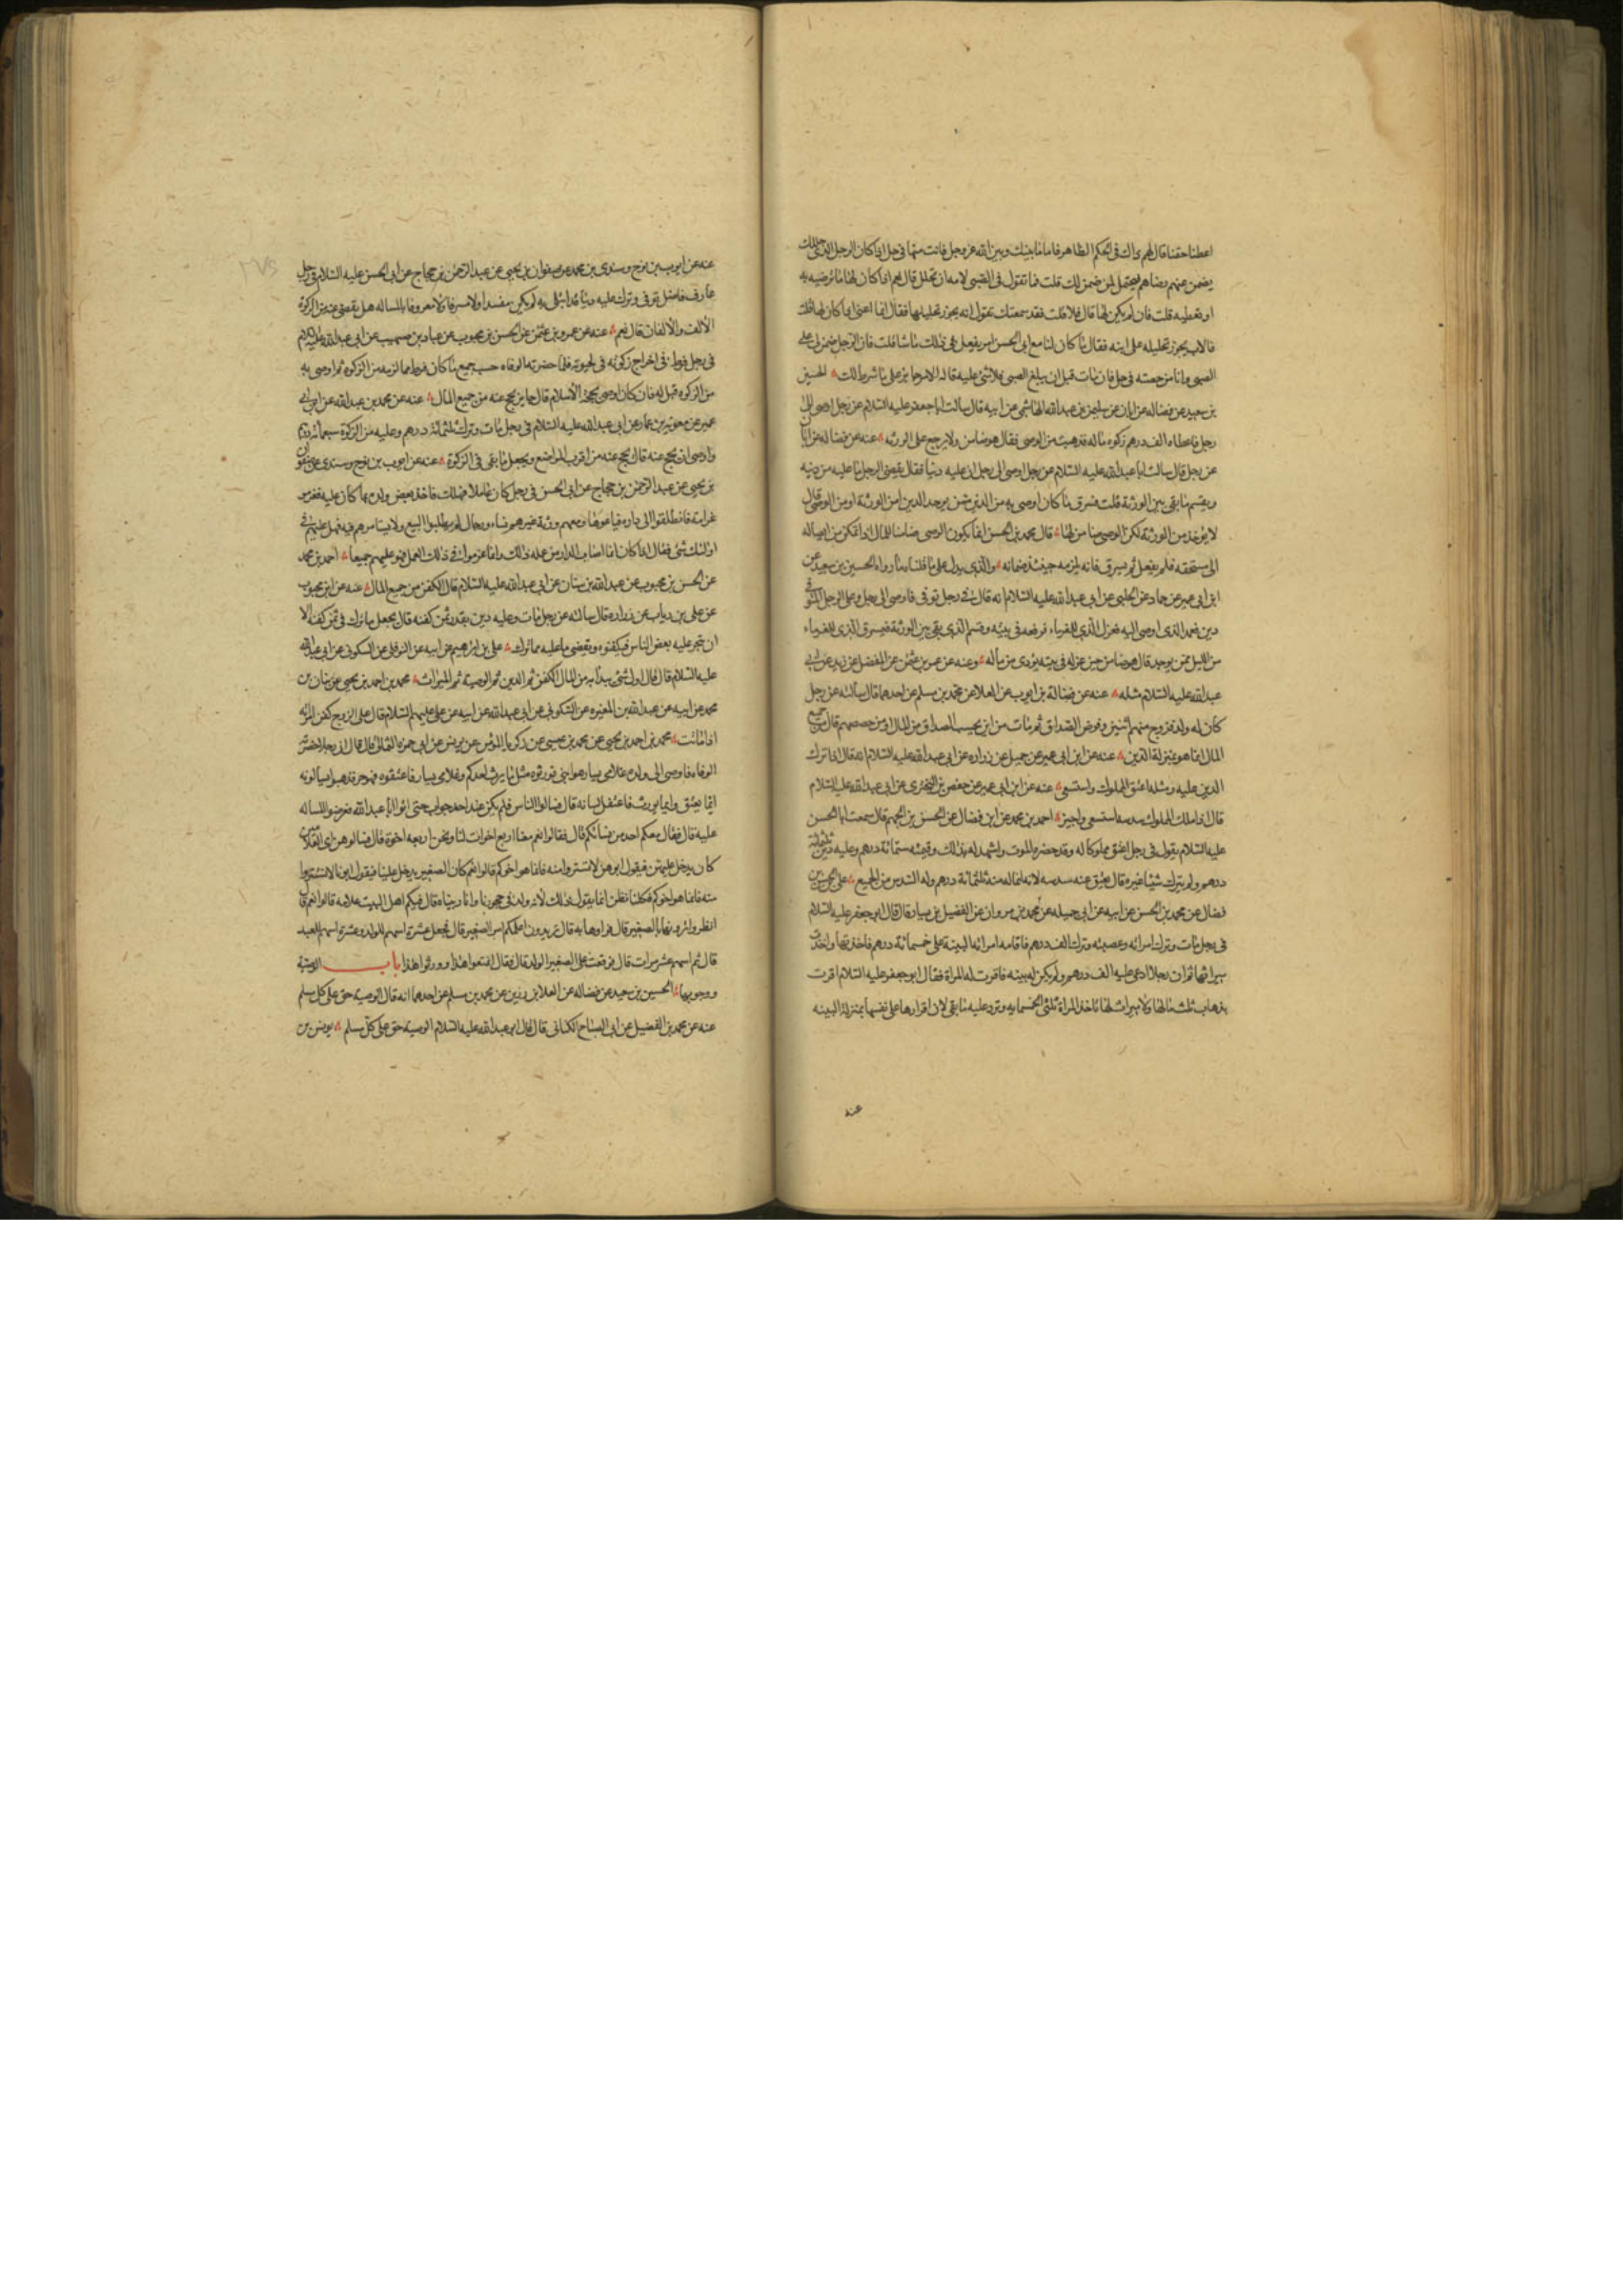 اعطنا حقنا قال لهم ذاك في الحكم الظاهر فاما ما بينك وبين الله عز وجل فانت منها في حل اذا كان الرجل الذي حللك
يضمن عنهم رضاهم فيحتمل لمن ضمن لك قلت فما تقول في الصبي لامه ان تحلل قال نعم اذا كان لها ما ترضيه به
او تعطيه قلت فان لم يكن لها قال فلا قلت فقد سمعتك تقول انه يجوز تحليلها فقال انما اعني اذا كان لها قلت
فالاب يجوز تحليله على ابنه فقال ما كان لنا مع ابي الحسن امر يفعل في ذلك ما شا قلت فان الرجل ضمن لي على
الصبي وانا من حصته في حل فان مات قبل ان يبلغ الصبي فلا شي عليه قال الامر جايز على ما شرط لك الحسين
بن سعيد عن فضاله عن ابان عن سليمن بن عبد الله الهاشمي عن ابيه قال سالت ابا جعفر عليه السلام عن رجل اوصى الى
رجل فاعطاه الف درهم زكوه ماله فذهبت من الوصي فقال هو ضامن ولا يرجع على الورثه عنه عن فضاله عن ابان
عن رجل قال سالت ابا عبد الله عليه السلام عن رجل اوصى الى رجل ان عليه دينا فقال يقضي الرجل ما عليه من دينه
ويقسم ما بقي بين الورثة قلت فسرق ما كان اوصى به من الدين ممن يوخذ الدين امن الورثة او من الوصي قال
لا يوخذ من الورثة لكن الوصي ضامن لها قال محمد بن الحسن انما يكون الوصي ضامنا للمال اذا تمكن من ايصاله
الى مستحقه فلم يفعل ثم يسرق فانه يلزمه حينئذ ضمانه والذي يدل على ما قلناه ما رواه الحسين بن سعيد عن
ابن ابي عمير عن حماد عن الحلبي عن ابي عبد الله عليه السلام انه قال في رجل توفي فاوصى الى رجل وعلى الرجل المتوفي
دين فعمد الذي اوصى اليه فعزل الذي للغرماء فرفعه في بيته وقسم الذي بقي بين الورثة فيسرق الذي للغرماء
من الليل ممن يوخذ قال هو ضامن حين عزله في بيته يؤدي من ماله وعنه عن عمر بن عثمن عن المفضل عن زيد عن ابي
عبد الله عليه السلام مثله عنه عن فضالة بن ايوب عن العلا عن محمد بن مسلم عن احدهما قال سالته عن رجل
كان له ولد فزوج منهم اثنين وفرض الصداق ثم مات من اين يحسب الصداق من المال او من حصصهم قال من جميع
المال انما هو بمنزلة الدين عنه عن ابن ابي عمير عن جميل عن زراره عن ابي عبد الله عليه السلام انه قال اذا ترك
الدين عليه ومثله اعتق المملوك واستسعى عنه عن ابن ابي عمير عن حفص بن البختري عن ابي عبد الله عليه السلام
قال اذا ملك المملوك سدسه استسعى واجيز احمد بن محمد عن ابن فضال عن الحسن بن الجهم قال سمعت ابا الحسن
عليه السلام يقول في رجل اعتق مملوكا له وقد حضره الموت واشهد له بذلك وقيمته ستمائة درهم وعليه دين ثلثمائة
درهم ولم يترك شيئا غيره قال يعتق عنه سدسه لانه انما له منه ثلثمائة درهم وله السدس من الجميع علي بن الحسن بن
فضال عن محمد بن الحسن عن ابيه عن ابي جميله عن محمد بن مروان عن الفضيل بن يسار قال قال ابو جعفر عليه السلام
في رجل مات وترك امراته وعصبته وترك الف درهم فاقامه امراته البينة على خمسمائة درهم فاخذتها واخذت
ميراثها ثم ان رجلا ادعى عليه الف درهم ولم يكن له بينه فاقرت له المراة فقال ابو جعفر عليه السلام اقرت
بذهاب ثلث مالها ولا ميراث لها تاخذ المراة ثلثي الخمسمايه وترد عليه ما بقي لان اقرارها على نفسها بمنزلة البينه
عنه
عنه عن ايوب بن نوح وسندي بن محمد عن صفوان بن يحيى عن عبد الرحمن بن حجاج عن ابي الحسن عليه السلام في رجل
عارف فاضل توفي وترك عليه دينا قد ابتلى به لم يكن بمفسد ولا مسرف ولا معروف بالمساله هل يقضى عنه من الزكوة
الالف والالفان قال نعم عنه عن عمرو بن عثمن عن الحسن بن محبوب عن عباد بن صهيب عن ابي عبد الله عليه السلام
في رجل فرط في اخراج زكوته في حيوته فلما حضرته الوفاه حسب جميع ما كان فرط مما لزمه من الزكوه ثم اوصى به
من الزكوه قيل له فان كان اوصى بحجة الاسلام قال جايز يحج عنه من جميع المال عنه عن محمد بن عبد الله عن ابن ابي
عمير عن معوية بن عمار عن ابي عبد الله عليه السلام في رجل مات وترك ثلثمائة درهم وعليه من الزكوة سبعمائة درهم
واوصى ان يحج عنه قال يحج عنه من اقرب المواضع ويجعل ما بقي في الزكوة عنه عن ايوب بن نوح وسندي عن صفوان
بن يحيى عن عبد الرحمن بن حجاج عن ابي الحسن في رجل كان عاملا فهلك فاخذ بعض ولده بما كان عليه فغرمو
غرامة فانطلقوا الى داره فباعوها ومعهم ورثة غيرهم نساء ورجال لم يطلبوا البيع ولا يستامرهم فيه فهل عليهم في
اولئك شئ فقال اذا كان انما اصاب الدار من عمله ذلك وانما غرموا في ذلك العمل فهو عليهم جميعا احمد بن محمد
عن الحسن بن محبوب عن عبد الله بن سنان عن ابي عبد الله عليه السلام قال الكفن من جميع المال عنه عن ابن محبوب
عن علي بن رياب عن زراره قال سالته عن رجل مات وعليه دين بقدر ثمن كفنه قال يجعل ما ترك في ثمن كفنه الا
ان يتجر عليه بعض الناس فيكفنوه ويقضى ما عليه مما ترك علي بن ابرهيم عن ابيه عن النوفلي عن السكوني عن ابي عبد الله
عليه السلام قال قال اول شئ يبدأ به من المال الكفن ثم الدين ثم الوصية ثم الميراث محمد بن احمد بن يحيى عن بنان بن
محمد عن ابيه عن عبد الله بن المغيره عن السكوني عن ابي عبد الله عن ابيه عن علي عليهم السلام قال على الزوج كفن امراته
اذا ماتت محمد بن احمد بن يحيى عن محمد بن عيسى عن زكريا المؤمن عن يونس عن ابي حمزه الثمالي قال قال ان رجلا حضرته
الوفاه فاوصى الى ولده غلامي يسار هو ابني فورثوه مثل ما يرث احدكم وغلامي يسار فاعتقوه فهو حر فذهبوا يسألونه
ايما يعتق وايما يورث فاعتقل لسانه قال فسالوا الناس فلم يكن عند احد جواب حتى اتوا ابا عبد الله فعرضوا المساله
عليه قال فقال معكم احد من نسائكم قال فقالوا نعم معنا اربع اخوات لنا ونحن اربعه اخوة قال فسالوهن اي الغلامين
كان يدخل عليهن فيقول ابوهن لا تستتروا منه فانما هو اخوكم قالوا نعم كان الصغير يدخل علينا فيقول ابونا لا تستتروا
منه فانما هو اخوكم فكنا نظن انما يقول ذلك لانه ولد في حجورنا وانا ربيناه قال فيكم اهل البيت علامه قالوا نعم قال
انظروا اترونها بالصغير قال فراوها به قال تريدون اعلمكم امر الصغير قال فجعل عشرة اسهم للولد وعشرة اسهم للعبد
قال ثم اسهم عشر مرات قال فوقعت على الصغير الولد قال فقال اعتقوا هذا وورثوا هذا باب الوصية
ووجوبها الحسين بن سعيد عن فضاله عن العلا بن رزين عن محمد بن مسلم عن احدهما انه قال الوصية حق على كل مسلم
عنه عن محمد بن الفضيل عن ابي الصباح الكناني قال قال ابو عبد الله عليه السلام الوصية حق على كل مسلم يونس بن